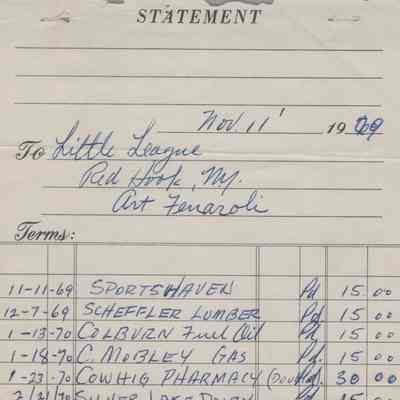 STATEMENT
Nov. 11' 1969
To Little League
Red Hook, Ny.
Art Fenaroli
Terms:
11-11-69 SPORTSHAVEN Pd 15 00
12-7-69 SCHEFFLER LUMBER Pd. 15 00
1-13-70 COLBURN Fuel Oil Pd. 15 00
1-18-70 C. MOBLEY GAS Pd. 15 00
1-23-70 COWHIG PHARMACY (Double) Pd. 30 00
2/21/70 SILVER LAKE DAIRY Pd 15 00